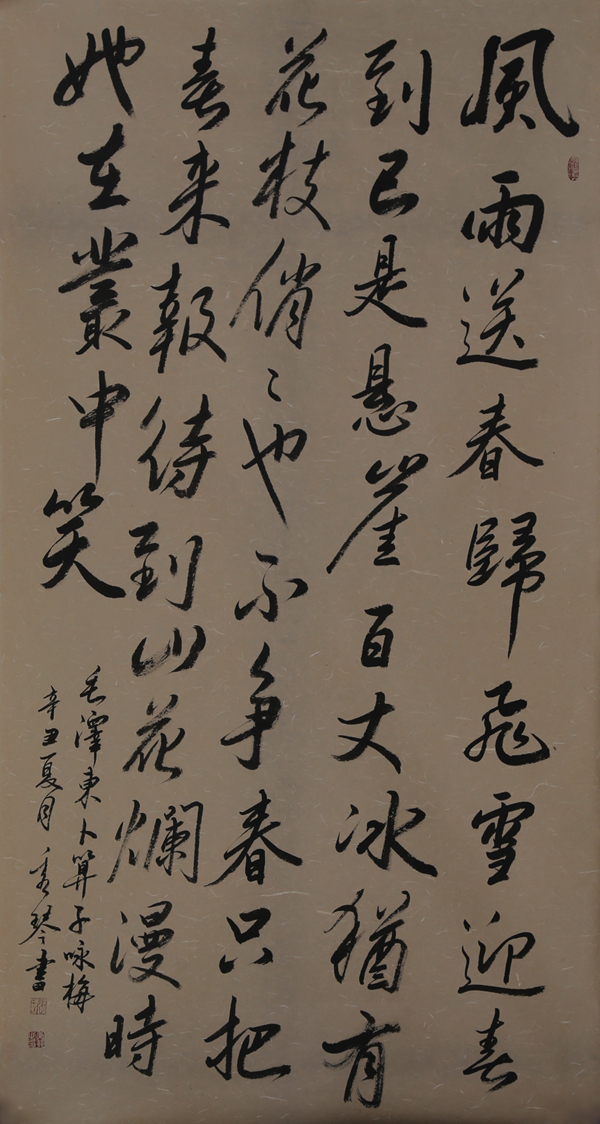 風雨送春歸飛雪迎春
到已是懸崖百丈冰猶有
花枝俏〻也不争春只把
春来報待到山花爛漫時
她在叢中笑
毛澤東卜算子咏梅
辛丑夏月秀琴書